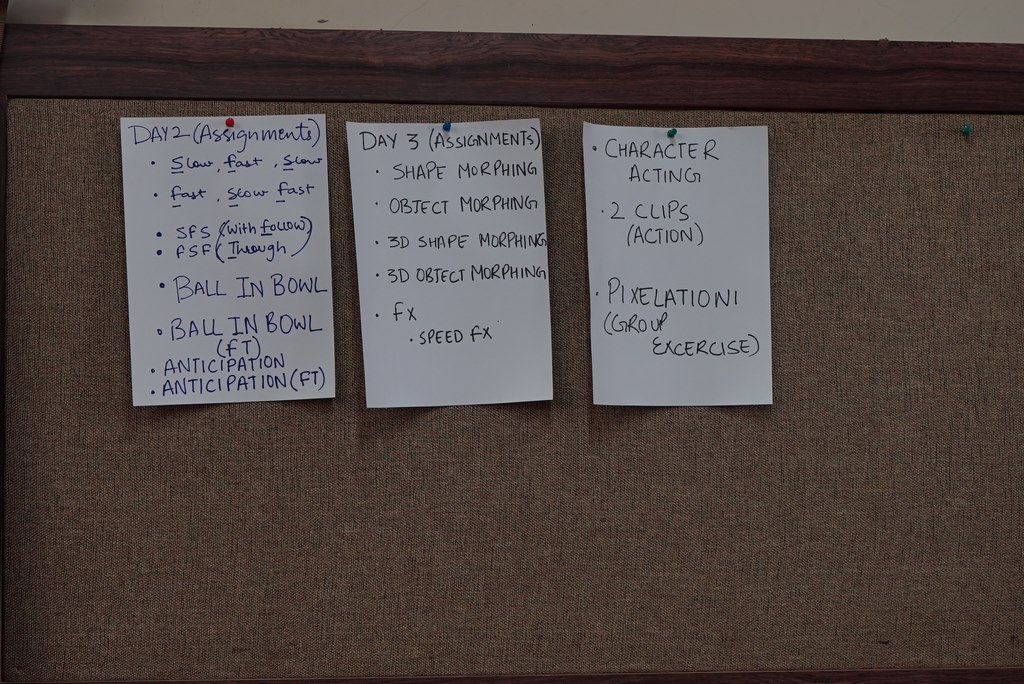 DAY 2 (Assignments)
• Slow, fast, Slow
• fast, slow fast
• SFS (With Follow)
• FSF (Through)
• BALL IN BOWL
• BALL IN BOWL
(FT)
• ANTICIPATION
• ANTICIPATION (FT)
DAY 3 (ASSIGNMENTS)
• SHAPE MORPHING
• OBJECT MORPHING
• 3D SHAPE MORPHING
• 3D OBJECT MORPHING
• FX
• SPEED FX
• CHARACTER
ACTING
• 2 CLIPS
(ACTION)
• PIXELATION
(GROUP
EXCERCISE)